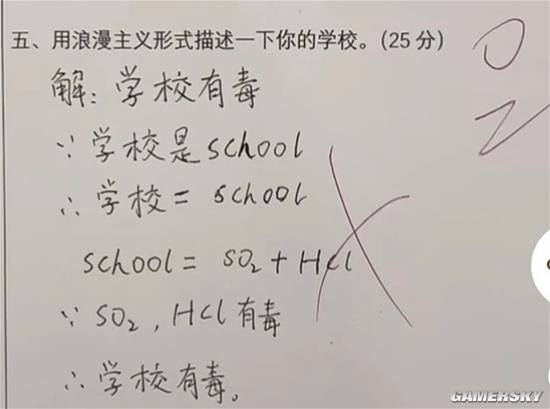 五、用浪漫主义形式描述一下你的学校。(25分)
0
解：学校有毒
∵学校是school
∴学校= school
school= SO₂+HCl
∵ SO₂，HCl有毒
∴学校有毒。
GAMERSKY